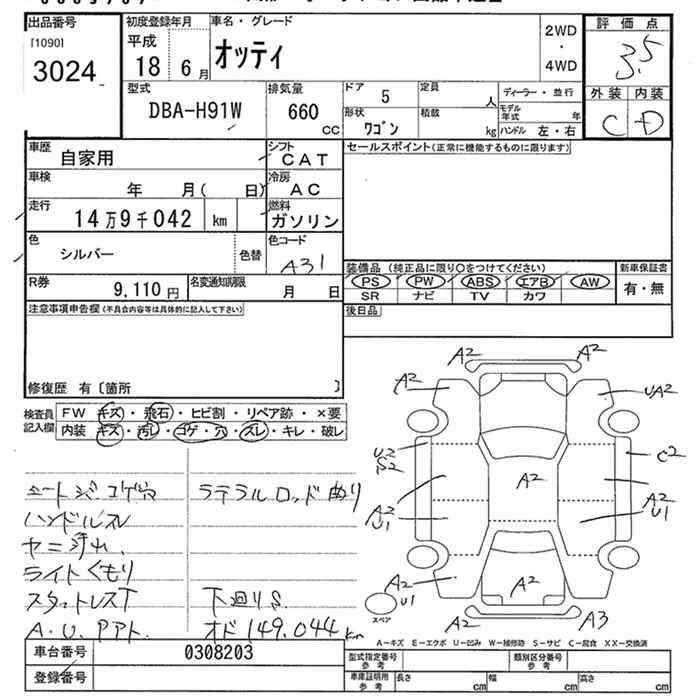 出品番号
[1090]
3024
初度登録年月
平成
18 6月
車名・グレード
オッティ
2WD
・
4WD
評価点
3.5
外装 内装
C D
型式
DBA-H91W
排気量
660
CC
ドア 5
形状
ワゴン
定員
人
積載
kg
ディーラー・並行
モデル年式 年
ハンドル 左・右
車歴
自家用
シフト
CAT
セールスポイント(正常に機能するものに限ります)
車検
年 月( 日)
冷房
AC
走行
14万9千042 km
燃料
ガソリン
色
シルバー
色替
色コード
A31
R券
9,110円
名変通知期限
月 日
装備品 (純正品に限り○をつけてください)
PS PW ABS エアB AW
SR ナビ TV カワ
新車保証書
有・無
後日品
注意事項申告欄(不具合内容等は具体的に記入して下さい)
修復歴 有〔箇所 〕
検査員
記入欄
FW キズ・飛石・ヒビ割・リペア跡・×要
内装 キズ・汚れ・コゲ・穴・スレ・キレ・破レ
シートシミコゲ穴
ハンドルスレ
ヤニ汚れ
ライトくもり
スタットレス下
A.U.PPt.
ラテラルロッド曲り
下廻りS
オド149.044km
A2 A2
A2 UA2
U2
S2
C2
A2
A2
U1
A2
U1
A2
U1
A2
A2 A3
スペア
A−キズ E−エクボ U−凹み W−補修跡 S−サビ C−腐食 XX−交換済
車台番号 0308203
登録番号
型式指定番号
参考
類別区分番号
参考
車庫証明用
参考
長さ cm 幅 cm 高さ cm